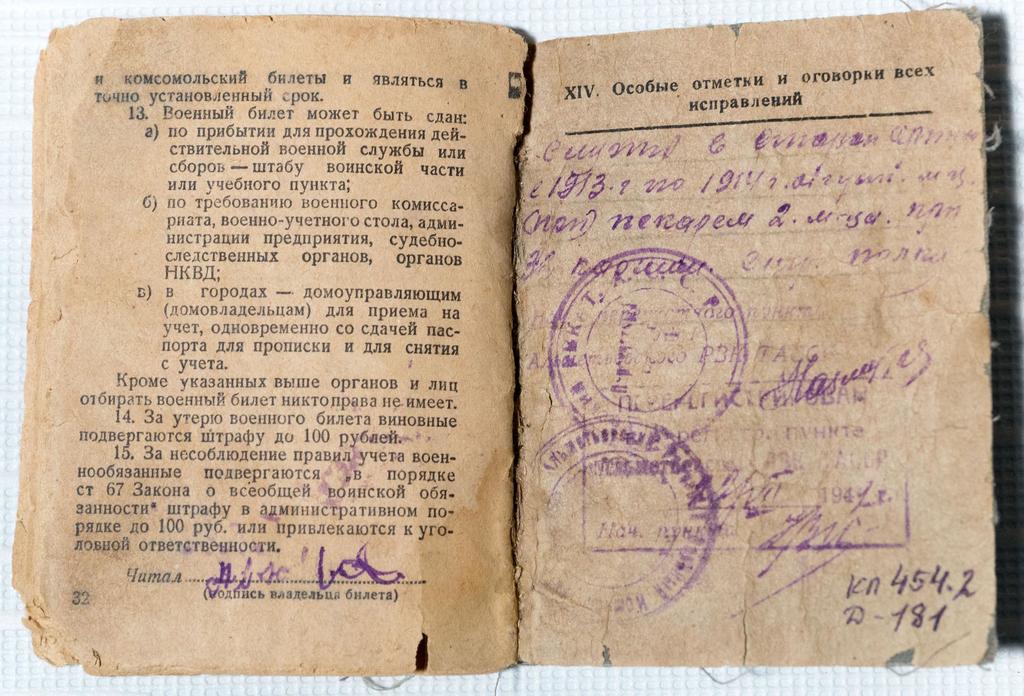 и комсомольский билеты и являться в
точно установленный срок.
13. Военный билет может быть сдан:
а) по прибытии для прохождения дей-
ствительной военной службы или
сборов — штабу воинской части
или учебного пункта;
б) по требованию военного комисса-
риата, военно-учетного стола, адми-
нистрации предприятия, судебно-
следственных органов, органов
НКВД;
в) в городах — домоуправляющим
(домовладельцам) для приема на
учет, одновременно со сдачей пас-
порта для прописки и для снятия
с учета.
Кроме указанных выше органов и лиц
отбирать военный билет никто права не имеет.
14. За утерю военного билета виновные
подвергаются штрафу до 100 рублей.
15. За несоблюдение правил учета воен-
нообязанные подвергаются „в порядке
ст 67 Закона о всеобщей воинской обя-
занности" штрафу в административном по-
рядке до 100 руб. или привлекаются к уго-
ловной ответственности.
Читал
(подпись владельца билета)
32
XIV. Особые отметки и оговорки всех
исправлений
Служил в старой
с 1913 г по 1914 г.
пекарем 2.
полка
пункта
РЗК ТАССР
ПЕРЕРЕГИСТРИРОВАН
пункте
194 г.
Нач. пункта
КП 454.2
Д-181